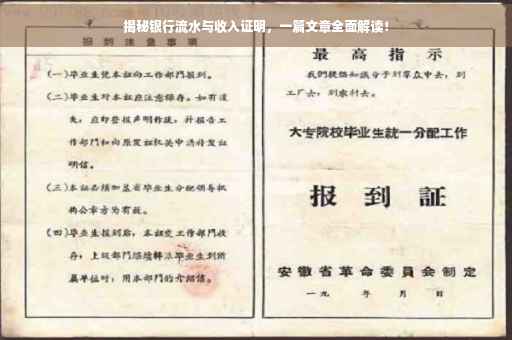 揭秘银行流水与收入证明，一篇文章全面解读！
报到注意事项
(一)毕业生凭本证向工作部門报到。
(二)毕业生对本証应注意保存。如有遺
失，应即登报声明作废，并报告工
作部門和向原发証机关申請补发証
明信。
(三)本証必须加盖省毕业生分配領导机
构公章方为有效。
(四)毕业生报到后，本証交工作部門收
存；上级部門继續轉派毕业生到所
属单位时，用本部門的介绍信。
最高指示
我們提倡知識分子到羣众中去，到
工厂去，到农村去。
大专院校毕业生統一分配工作
报到証
安徽省革命委員会制定
一九 年 月 日